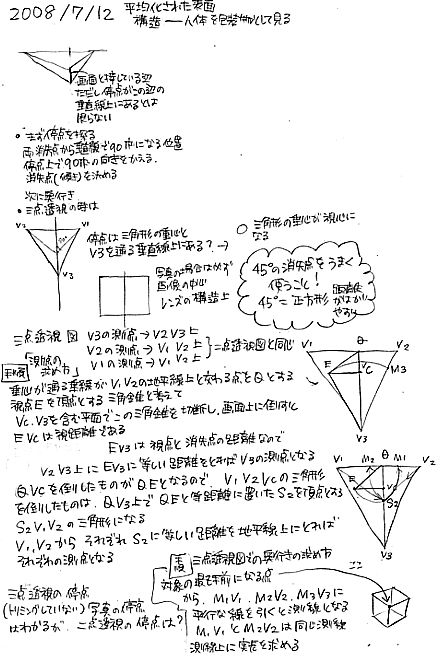 2008/7/12 平均化された表面
構造 ― 人体を包装材として見る
画面と接している辺
ただし停点がこの辺の
垂直線上にあるとは
限らない
• まず停点を探る
両消失点から直線で90°になる位置
停点上で90°の向きをかえる
消失点(傾き)を決める
次に奥行き
• 三点透視の時は
V2 V1
V3
停点は三角形の重心と
V3を通る垂直線上にある?→
○ 三角形の重心が視心に
なる
写真の場合はかならず
画像の中心
レンズの構造上
45°の消失点をうまく
使うこと!
45°=正方形 距離が
はかり
やすい
三点透視図 V3の測点→V2V3上
「測点の
求め方」
V2の測点→V1V2上
V1の測点→V1V2上
二点透視図と同じ
手順
重心が通る垂線がV1、V2の地平線上と交わる点をQとする
視点Eを頂点とする三角錐と考えて
VC、V3を含む平面でこの三角錐を切断し、画面上に倒すと
EVCは視距離である
EV3は視点と消失点の距離なので
V2V3上にEV3に等しい距離をとればV3の測点となる
QVCを倒したものがQEとなるので、V1、V2VCの三角形
を倒したものは、QV3上でQEと等距離に置いたS2を頂点とする
S2V1V2の三角形になる
V1、V2からそれぞれS2に等しい距離を地平線上にとれば
それぞれの測点となる
Q
V1 V2
E VC M3
V3
V1 M2 Q M1 V2
E
S2
V3
手順 三点透視図での奥行きの求め方
対象の最も手前になる点
から、M1V1、M2V2、M3V3に
平行な線を引くと測線となる
M1V1とM2V2は同じ測線
測線上に実長を求める
ココ
三点透視の停点
(トリミングしていない)写真の停点
はわかるが、二点透視の停点は?